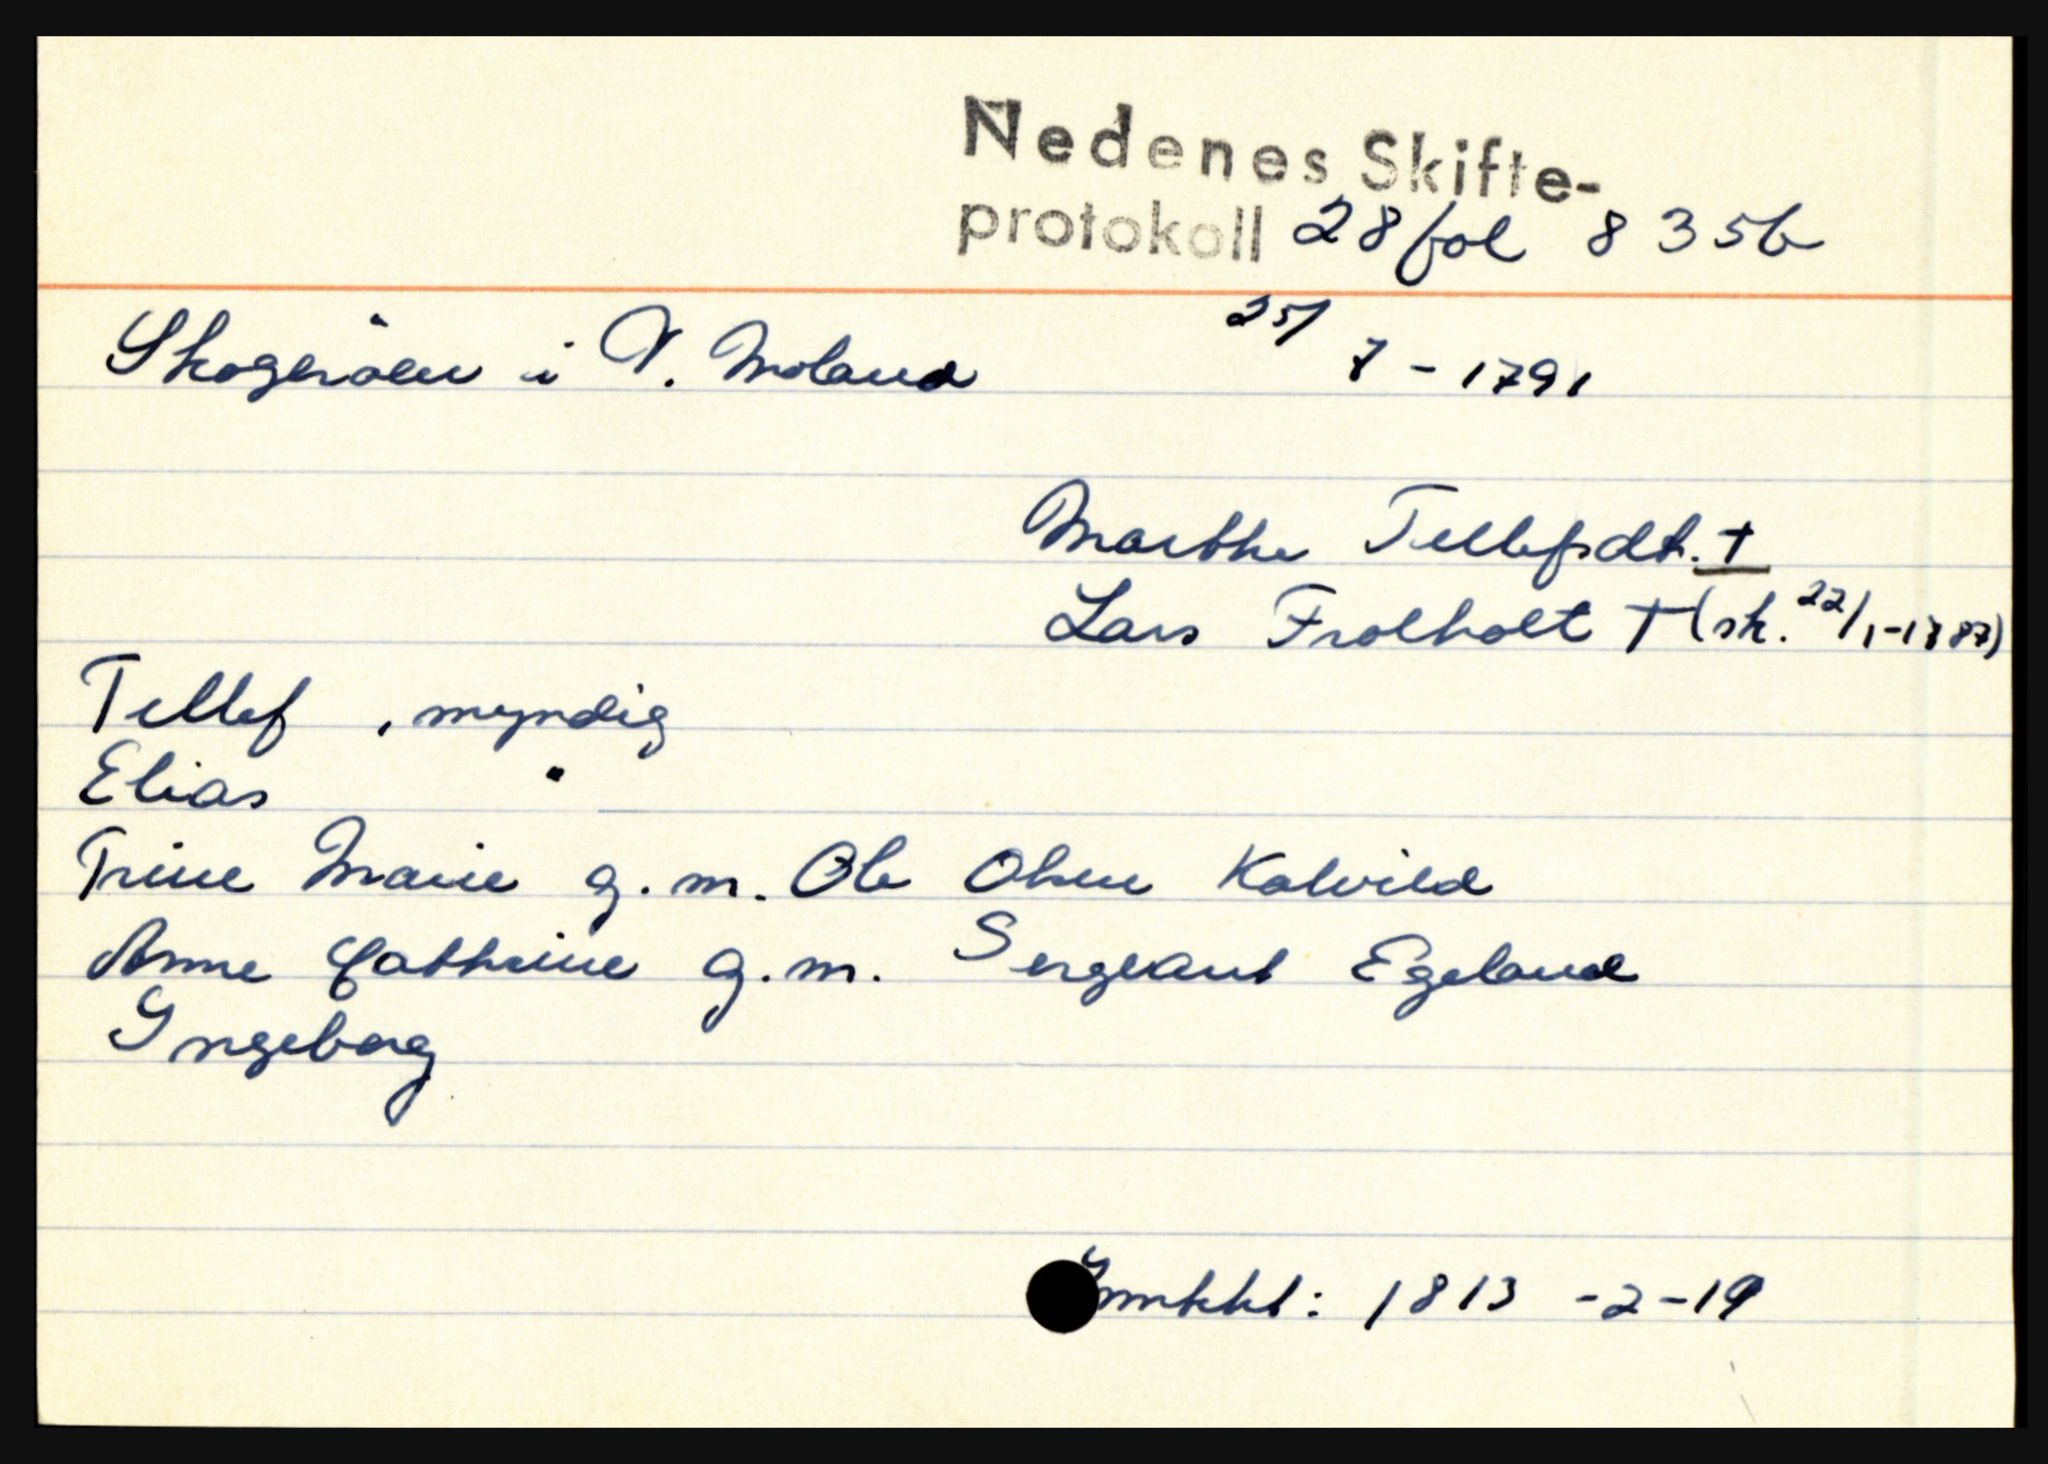 Nedenes Skifte-
protokoll 28 fol 835b
i V. Moland 25/7-1791
Marthe Tellefsdt. †
Lars Frolholt † (sk. 22/1-1787)
Tellef , myndig
Elias "
Trine Marie g.m. Ole Olsen Kalvild
Anne Cathrine g.m. Sergeant Egeland
Ingeborg
: 1813 -2-19